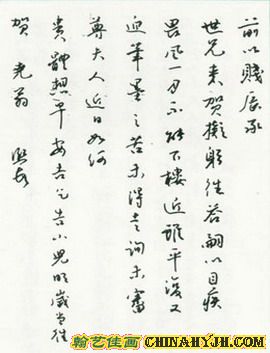 前以賤辰承
世兄来賀擬躬往答嗣以目疾
畏風一月不能下樓近雖平復又
迫筆墨之苦未得走詢未審
尊夫人近日如何
貴體想平安乞告小兒明歲當往
賀 翁
翰艺佳画
CHINAHYJH.COM